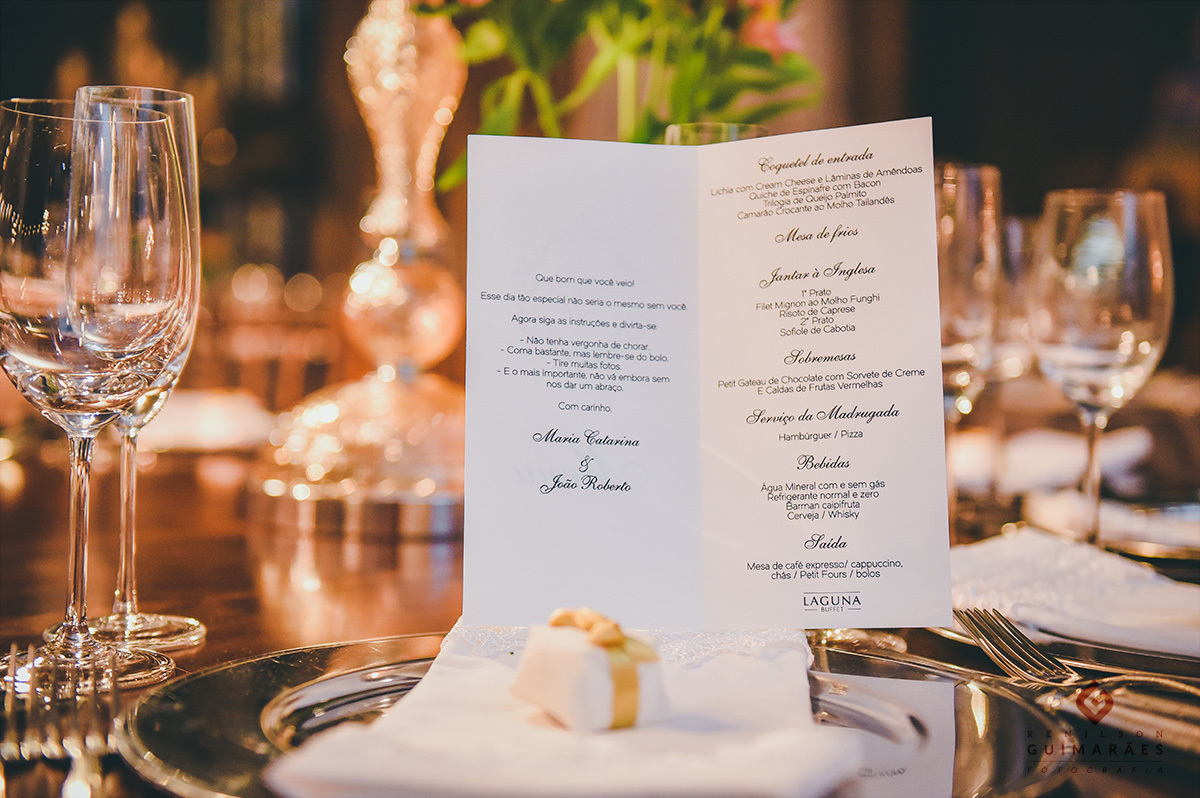 Que bom que você veio!
Esse dia tão especial não seria o mesmo sem você.
Agora siga as instruções e divirta-se:
- Não tenha vergonha de chorar.
- Coma bastante, mas lembre-se do bolo.
- Tire muitas fotos.
- E o mais importante, não vá embora sem
nos dar um abraço.
Com carinho,
Maria Catarina
&
João Roberto
Coquetel de entrada
Lichia com Cream Cheese e Lâminas de Amêndoas
Quiche de Espinafre com Bacon
Trilogia de Queijo Palmito
Camarão Crocante ao Molho Tailandês
Mesa de frios
Jantar à Inglesa
1º Prato
Filet Mignon ao Molho Funghi
Risoto de Caprese
2º Prato
Sofiole de Cabotia
Sobremesas
Petit Gateau de Chocolate com Sorvete de Creme
E Caldas de Frutas Vermelhas
Serviço da Madrugada
Hambúrguer / Pizza
Bebidas
Água Mineral com e sem gás
Refrigerante normal e zero
Barman caipifruta
Cerveja / Whisky
Saída
Mesa de café expresso/ cappuccino,
chás / Petit Fours / bolos
LAGUNA
BUFFET
RENILSON
GUIMARÃES
FOTOGRAFIA